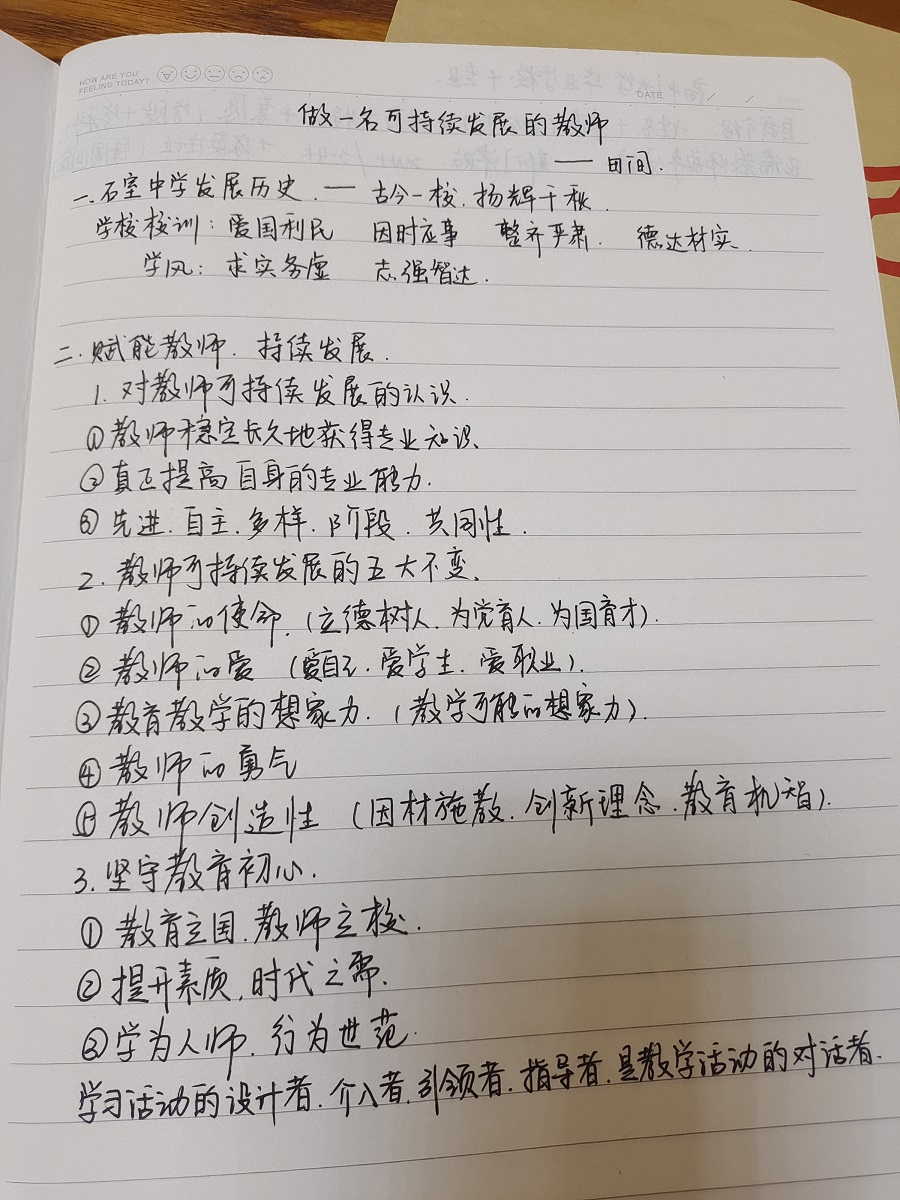 HOW ARE YOU
FEELING TODAY?
DATE / /
做一名可持续发展的教师
—— 田间.
一. 石室中学发展历史. — 古今一校, 扬辉千秋.
学校校训: 爱国利民 因时应事 整齐严肃. 德达材实.
学风: 求实务虚 志强智达.
二. 赋能教师. 持续发展.
1. 对教师可持续发展的认识.
① 教师稳定长久地获得专业知识.
② 真正提高自身的专业能力.
③ 先进. 自主. 多样. 阶段. 共同性.
2. 教师可持续发展的五大不变.
① 教师的使命. (立德树人. 为党育人. 为国育才).
② 教师的爱 (爱自己. 爱学生. 爱职业).
③ 教育教学的想象力. (教学可能的想象力).
④ 教师的勇气
⑤ 教师创造性 (因材施教. 创新理念. 教育机智).
3. 坚守教育初心.
① 教育立国. 教师立校.
② 提升素质, 时代之需.
③ 学为人师. 行为世范.
学习活动的设计者. 介入者. 引领者. 指导者. 是教学活动的对话者.